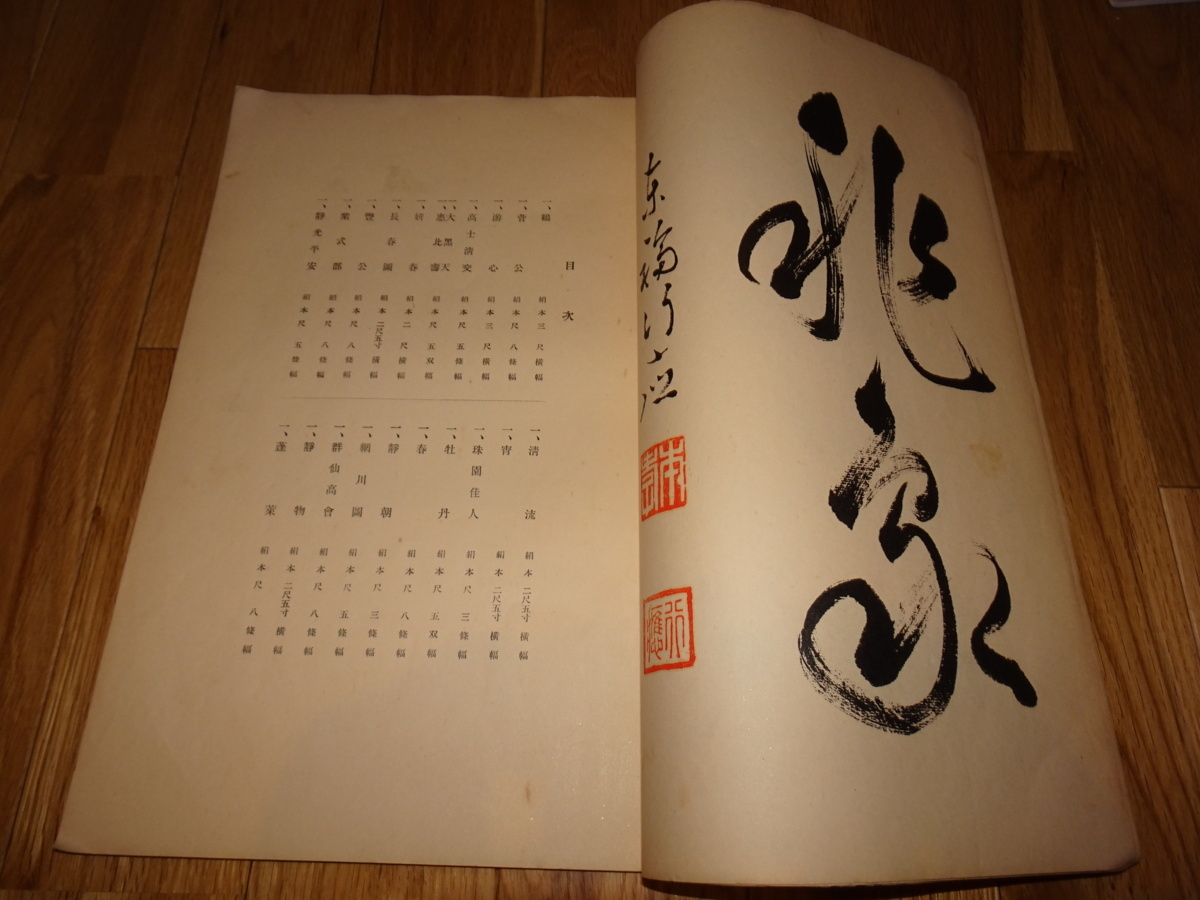 目次
一、鶴 絹本三尺横幅
一、菅公 絹本尺八條幅
一、游心 絹本三尺横幅
一、高士清交 絹本尺五條幅
一、大黒天
一、惠比壽 絹本尺五双幅
一、妍春 絹本二尺横幅
一、長春圖 絹本二尺五寸横幅
一、豐公 絹本尺八條幅
一、紫式部 絹本尺八條幅
一、靜光平安 絹本尺五條幅
一、清流 絹本二尺五寸横幅
一、宵 絹本二尺五寸横幅
一、珠園佳人 絹本尺三條幅
一、牡丹 絹本尺五双幅
一、春 絹本尺八條幅
一、靜朝 絹本尺三條幅
一、輞川圖 絹本尺五條幅
一、群仙高會 絹本尺八條幅
一、靜物 絹本二尺五寸横幅
一、蓬萊 絹本尺八條幅